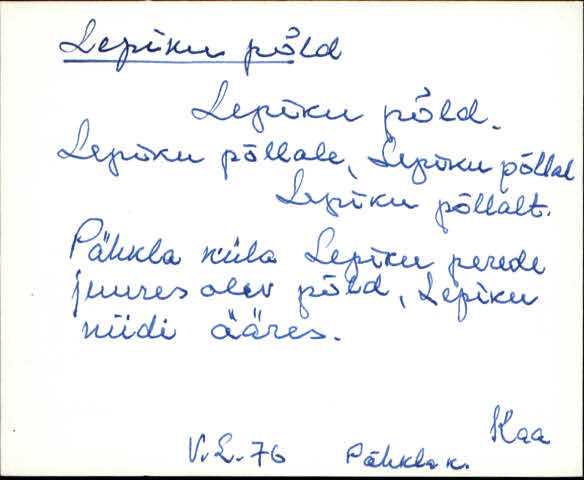 Lepiku põld
Lepiku põld.
Lepiku põllale, Lepiku põllal
Lepiku põllalt.
Pähkla küla Lepiku perede
juures olev põld, Lepiku
niidi ääres.
Kaa
V.L.76 Pähkla k.